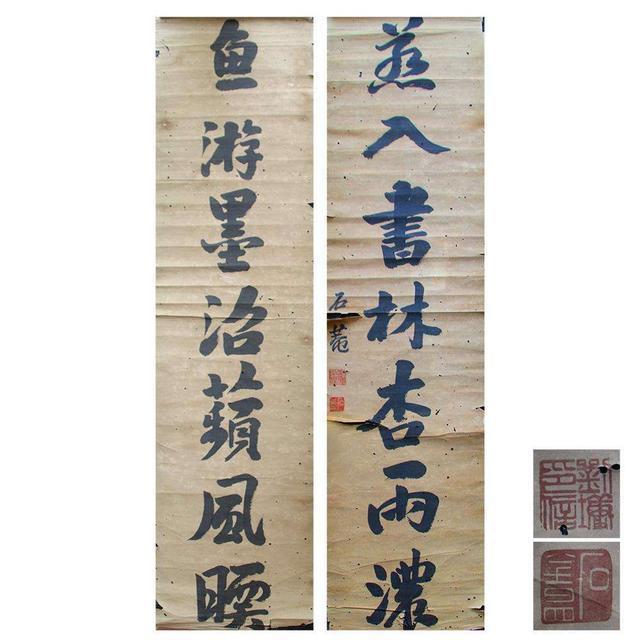 燕入書林杏雨濃
石菴
魚游墨沼蘋風暖
劉墉印信